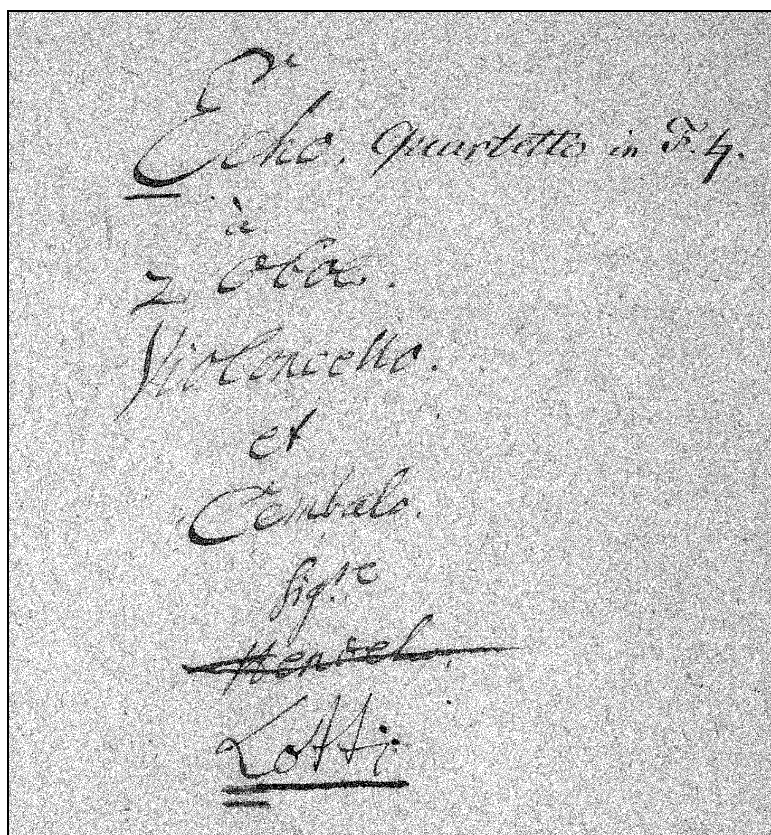 Echo. Quartetto in F. 4.
à
2 Oboe.
Violoncello.
et
Cembalo.
Sig.re
Lotti